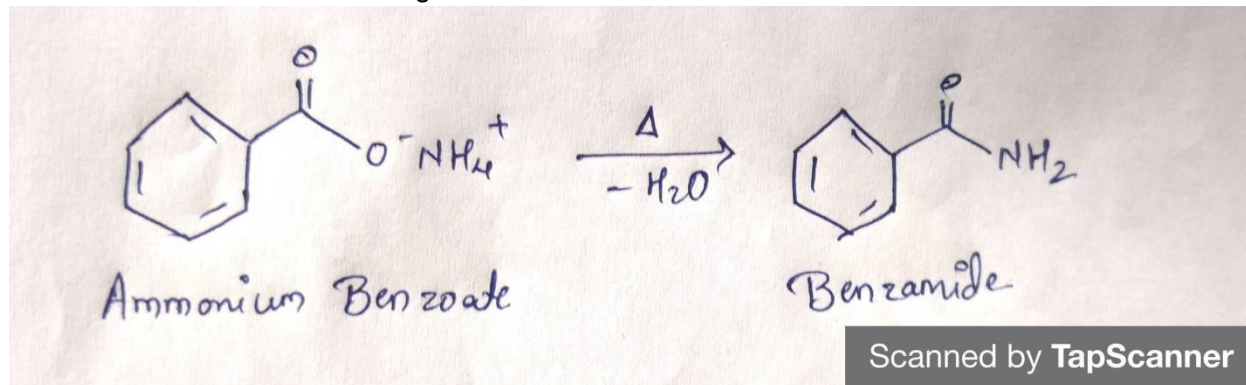 O
O⁻ NH₄⁺
Δ
- H₂O
O
NH₂
Ammonium Benzoate
Benzamide
Scanned by TapScanner